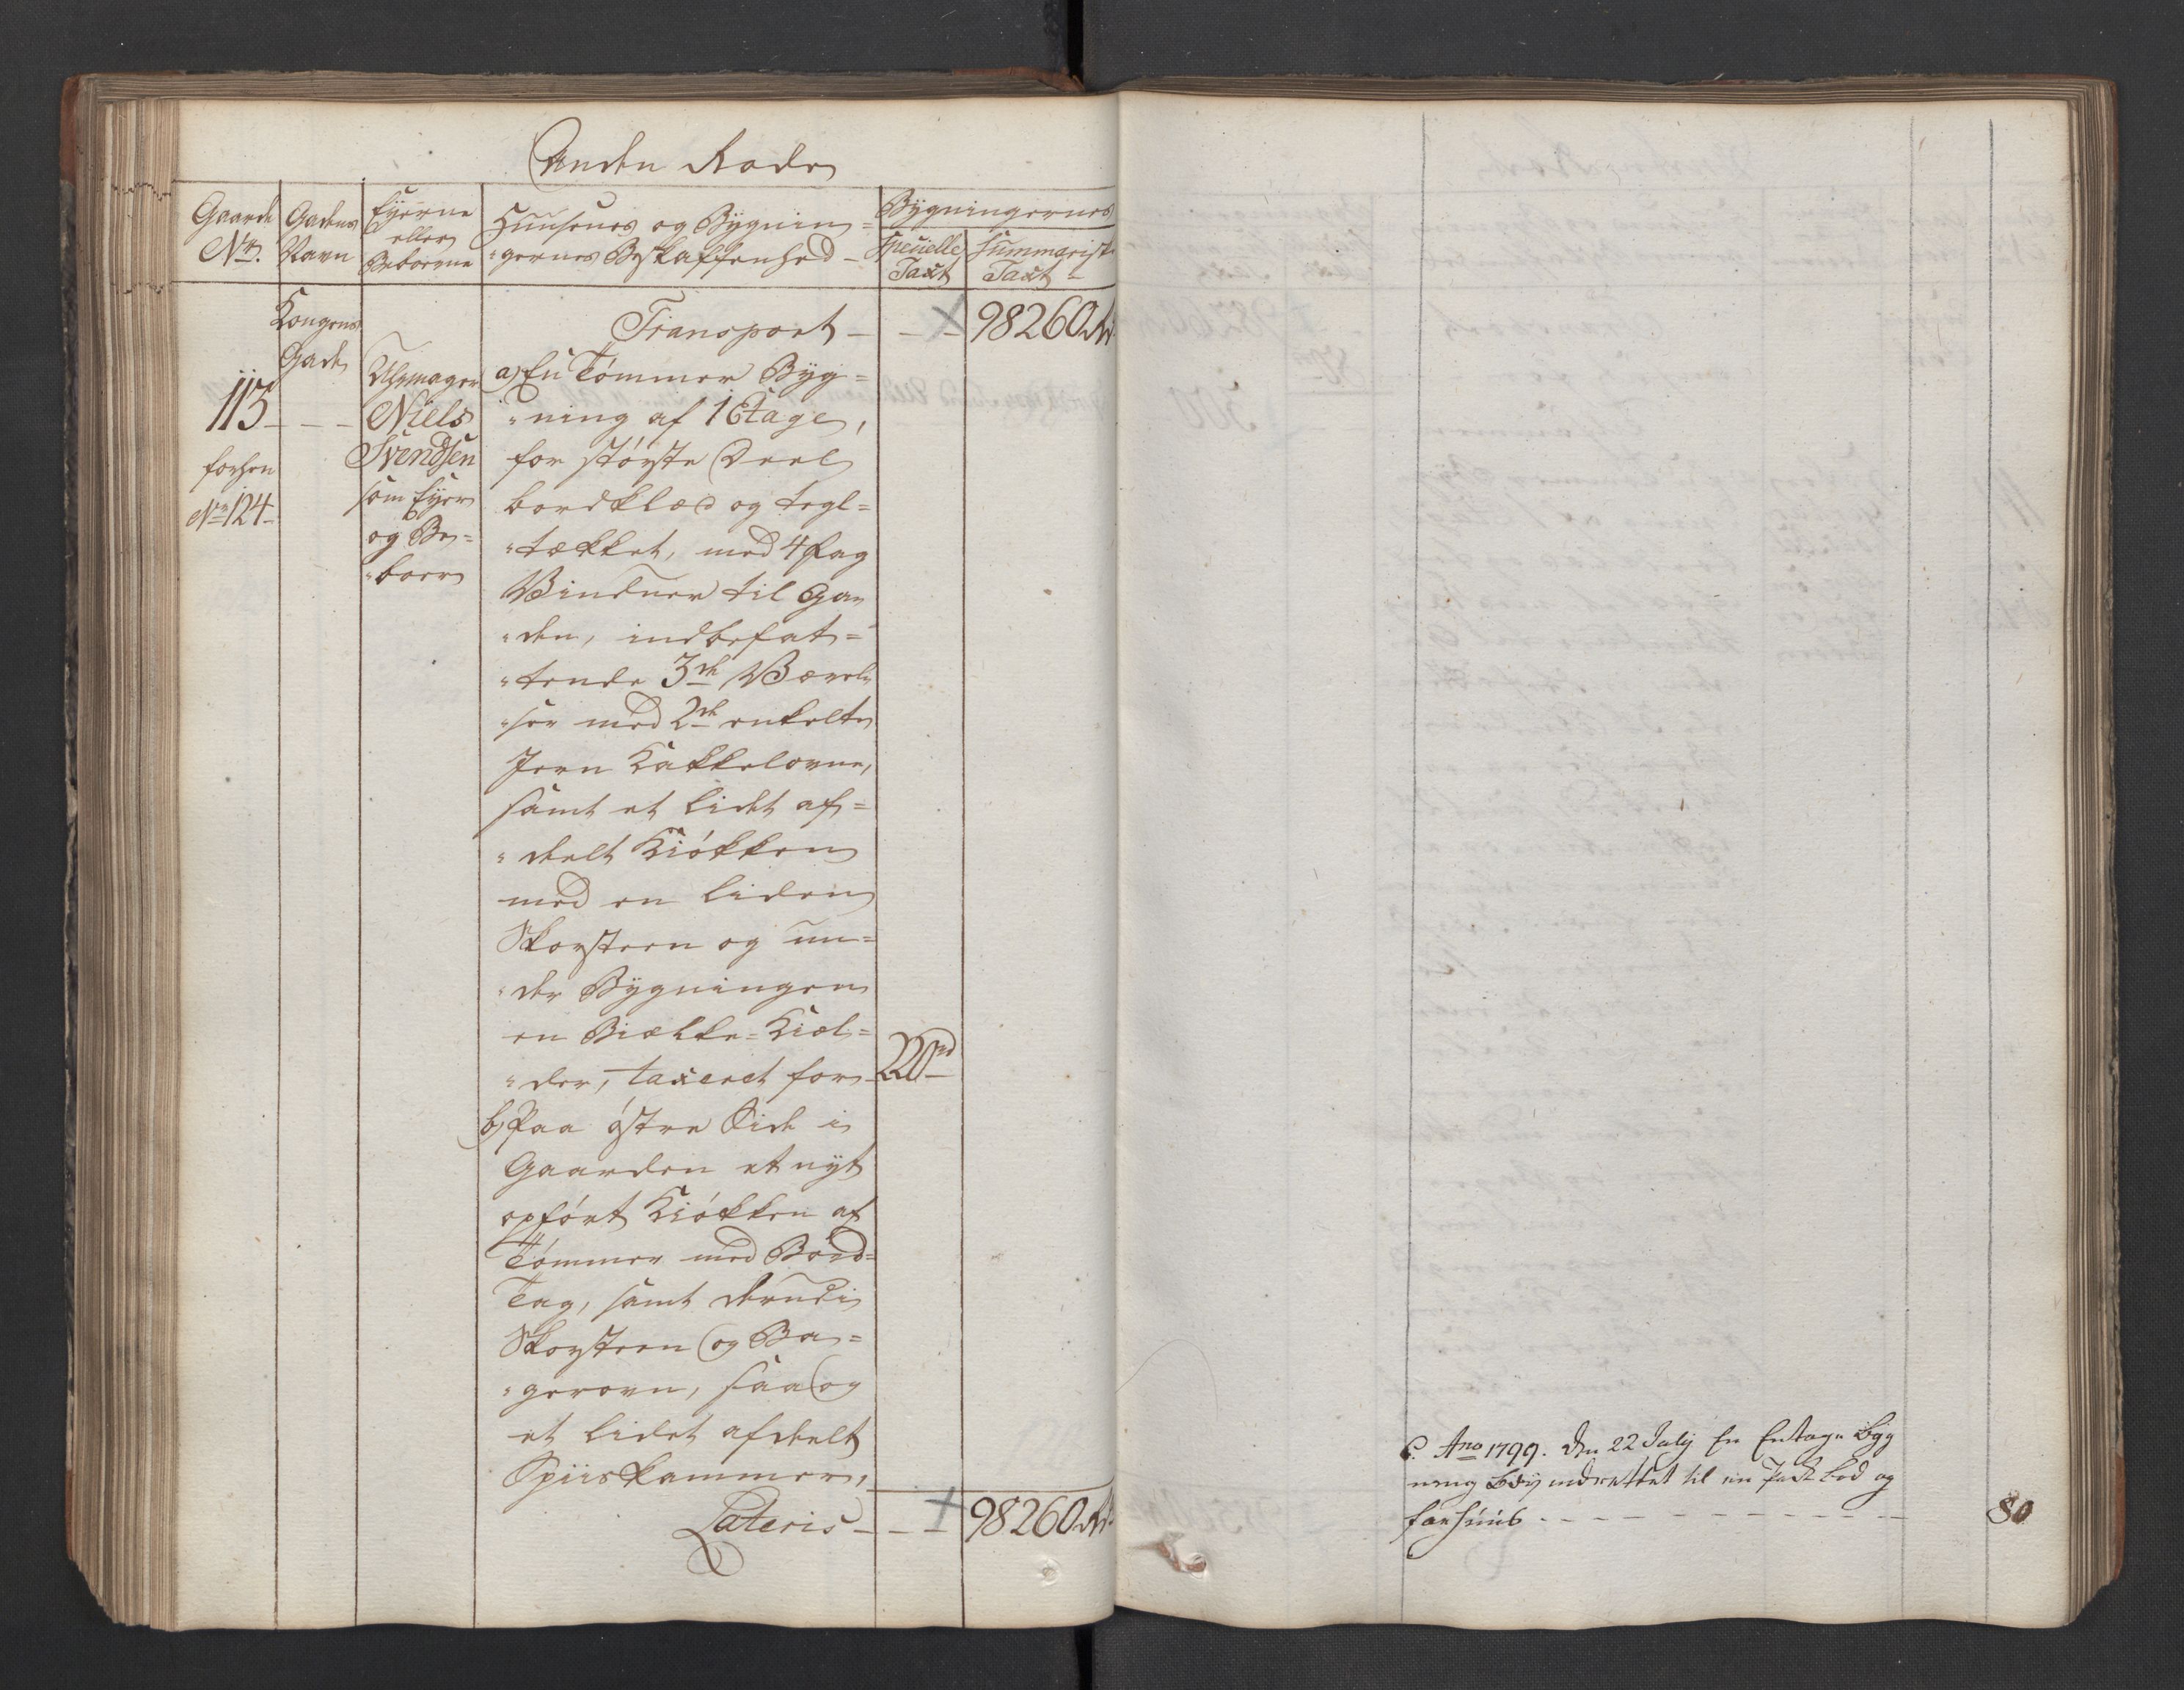 Anden Rode
Gaarde No.
Gadens Navn
Eyerne eller Beboerne
Huusenes og Bygnin=
"gernes Beskaffenhed
Bygningernes
Specielle Taxt
Summariske Taxt
Kongens
Gade
Transport — 98260 Rd
113
forhen
No 124
Uhrmager
Niels
Svendsen
som Eyer
og Be=
"boer
a) En Tømmer Byg=
"ning af 1 Etage,
for største Deel
bordklæd og tegl=
"tækket, med 4 Fag
Vinduer til Ga
"den, indbefat=
"tende 3de Værel
"ser med 2de enkelte
Jern Kakkelovne,
samt et lidet af=
"deelt Kiøkken
med en liden
Skorsteen og un=
"der Bygningen
en Bielke=Kiel=
"der, taxeret for 220 rd
b) Paa østre Side i
Gaarden et nyt
opført Kiøkken af
Tømmer med Bord=
Tag, samt derudi
Skorsteen og Ba=
"gerovn, saa og
et lidet afdeelt
Spiiskammer,
Lateris — 98260 Rd
C. Ano 1799. den 22 July En Entage Byg
ning indrettet til en Bod og
farhuus 80